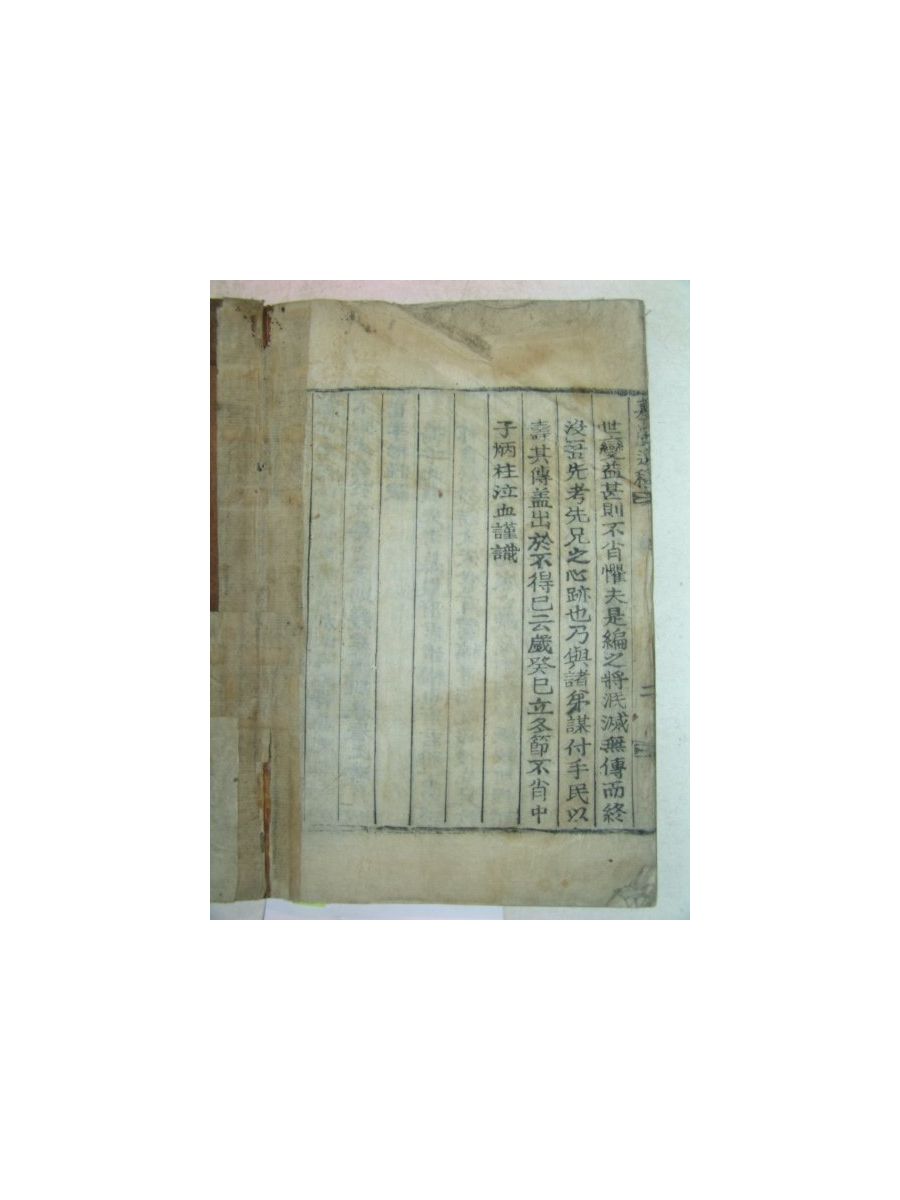 世變益甚則不肖懼夫是編之將泯滅無傳而終
沒吾先考先兄之心跡也乃與諸弟謀付手民以
壽其傳盖出於不得已云歲癸巳立冬節不肖中
子炳柱泣血謹識